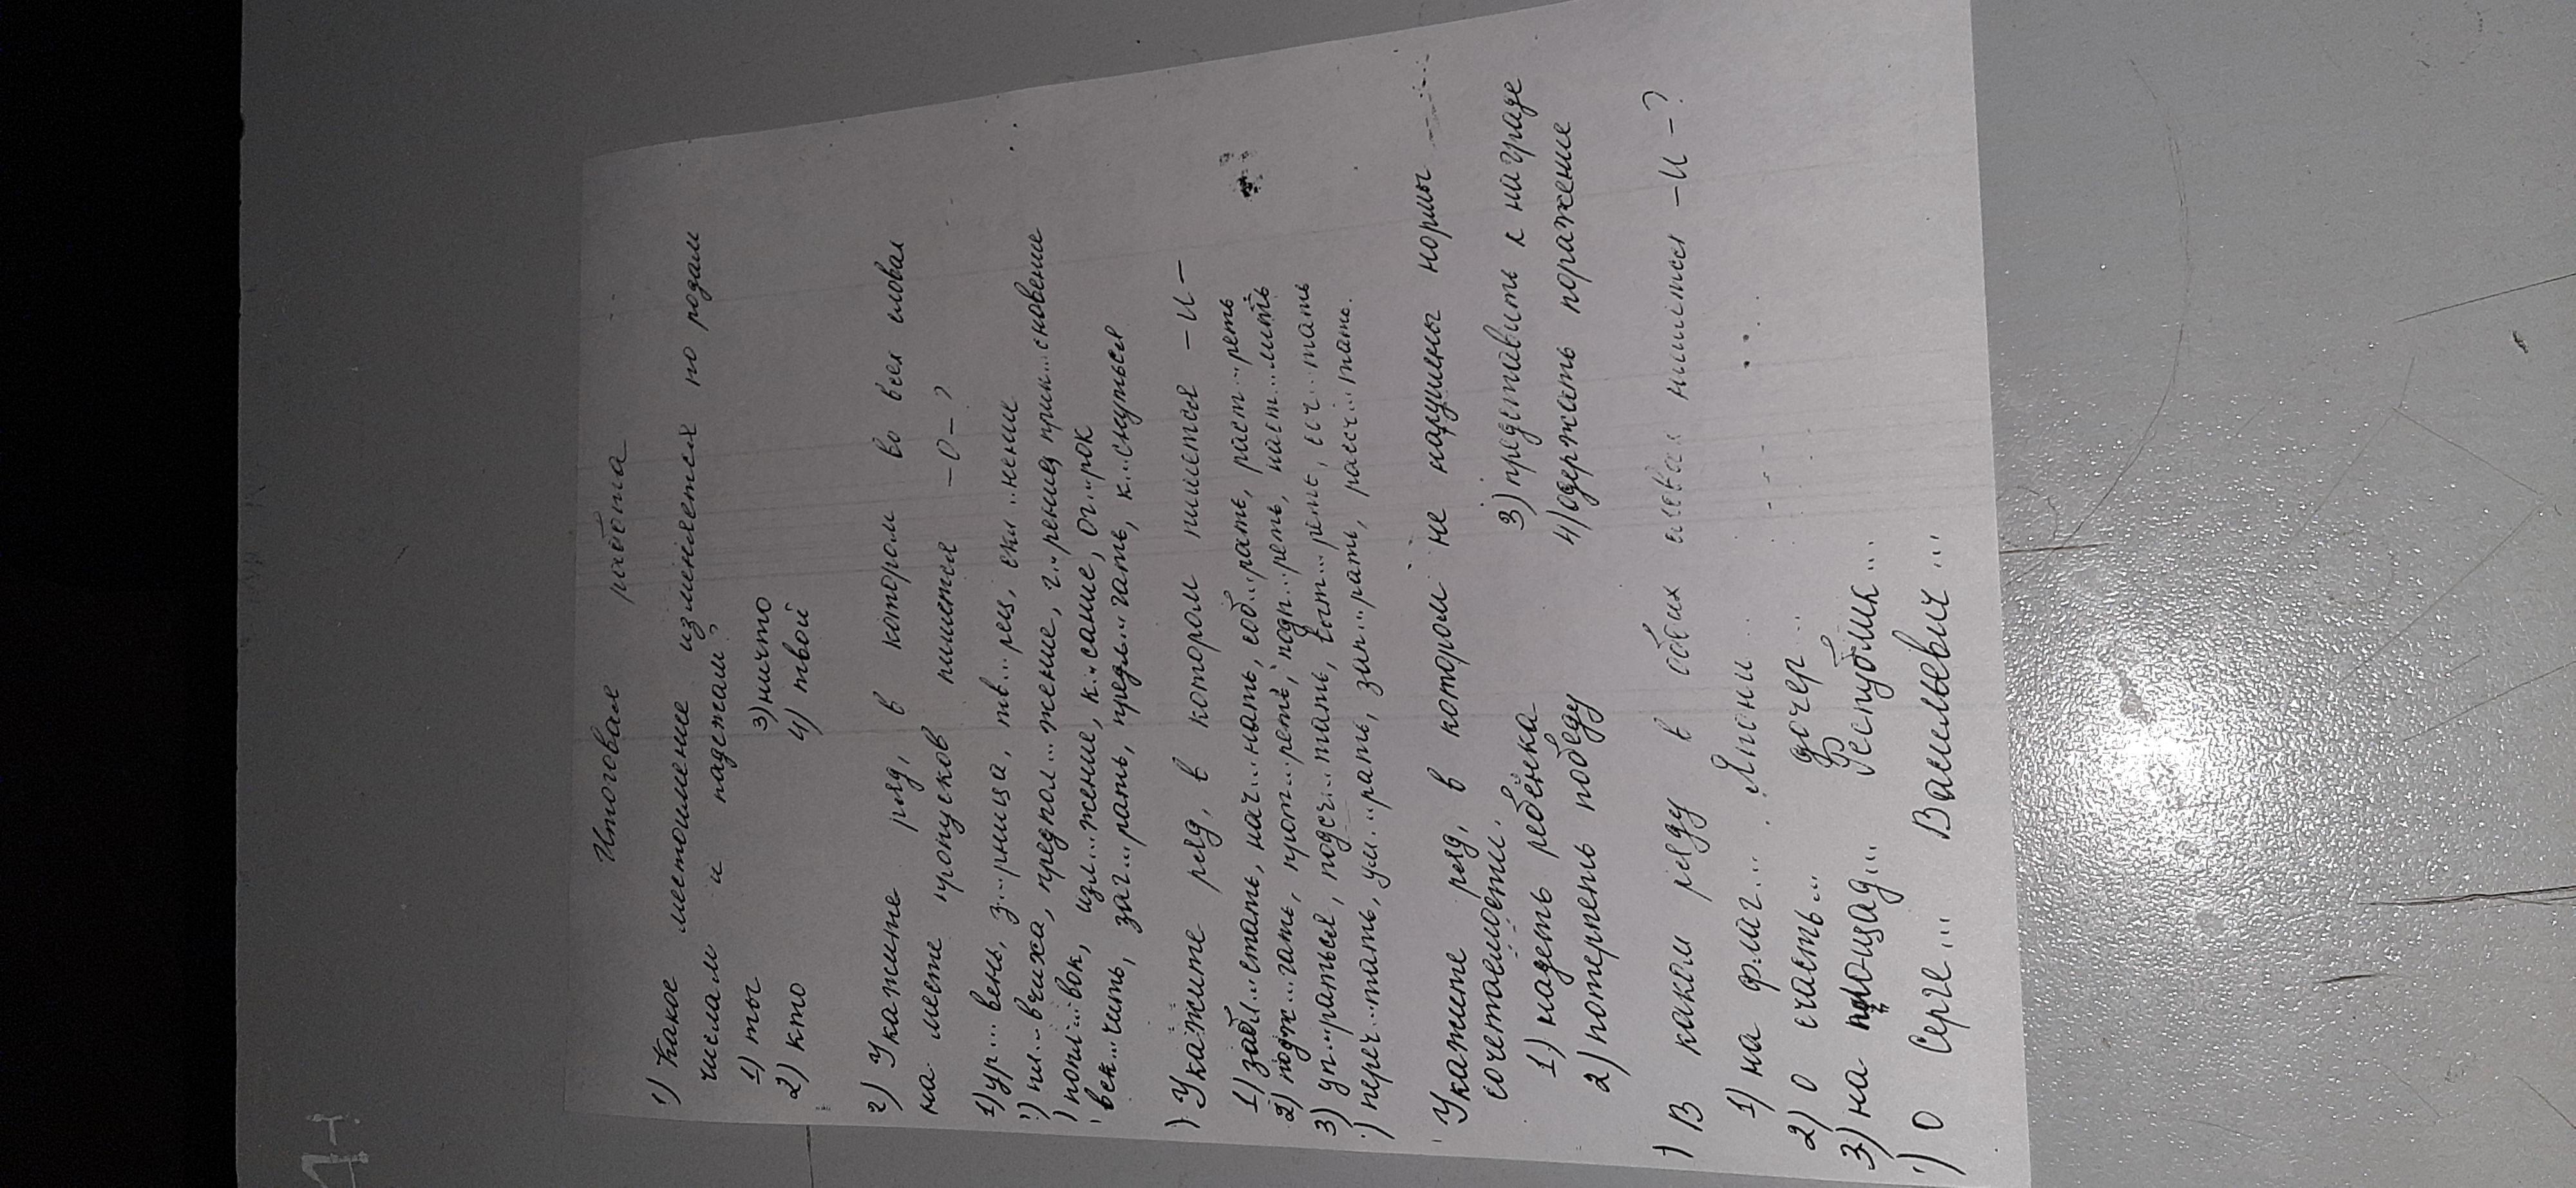 Итоговая работа
1) Какое местоимение изменяется по родам
числам и падежам?
1) ты 3) ничто
2) кто 4) твой
2) Укажите ряд, в котором во всех словах
на месте пропусков пишется -О-?
1) ур...вень, з...рница, тв...рец, скл...нение
) пл...вчиха, предпол...жение, г...рение, прик...сновение
) попл...вок, изл...жение, к...сание, ог...рок
вск...чить, заг...рать, предл...гать, к...снуться
) Укажите ряд, в котором пишется -И-
1) забл...стать, нач...нать, соб...рать, раст...реть
2) подж...гать, прот...реть, подп...реть, наст...лить
3) уп...раться, подсч...тать, ст...реть, сч...тать
) переч...тать, ум...рать, зап...рать, рассч...тать.
Укажите ряд, в котором не нарушены нормы
сочетаемости.
1) надеть ребёнка 3) представить к награде
2) потерпеть победу 4) одержать поражение
) В каком ряду в обоих словах пишется -И-?
1) на флаг... Япони...
2) о счасть... дочер...
3) на площад... Республик...
) о Серге... Васильевич...